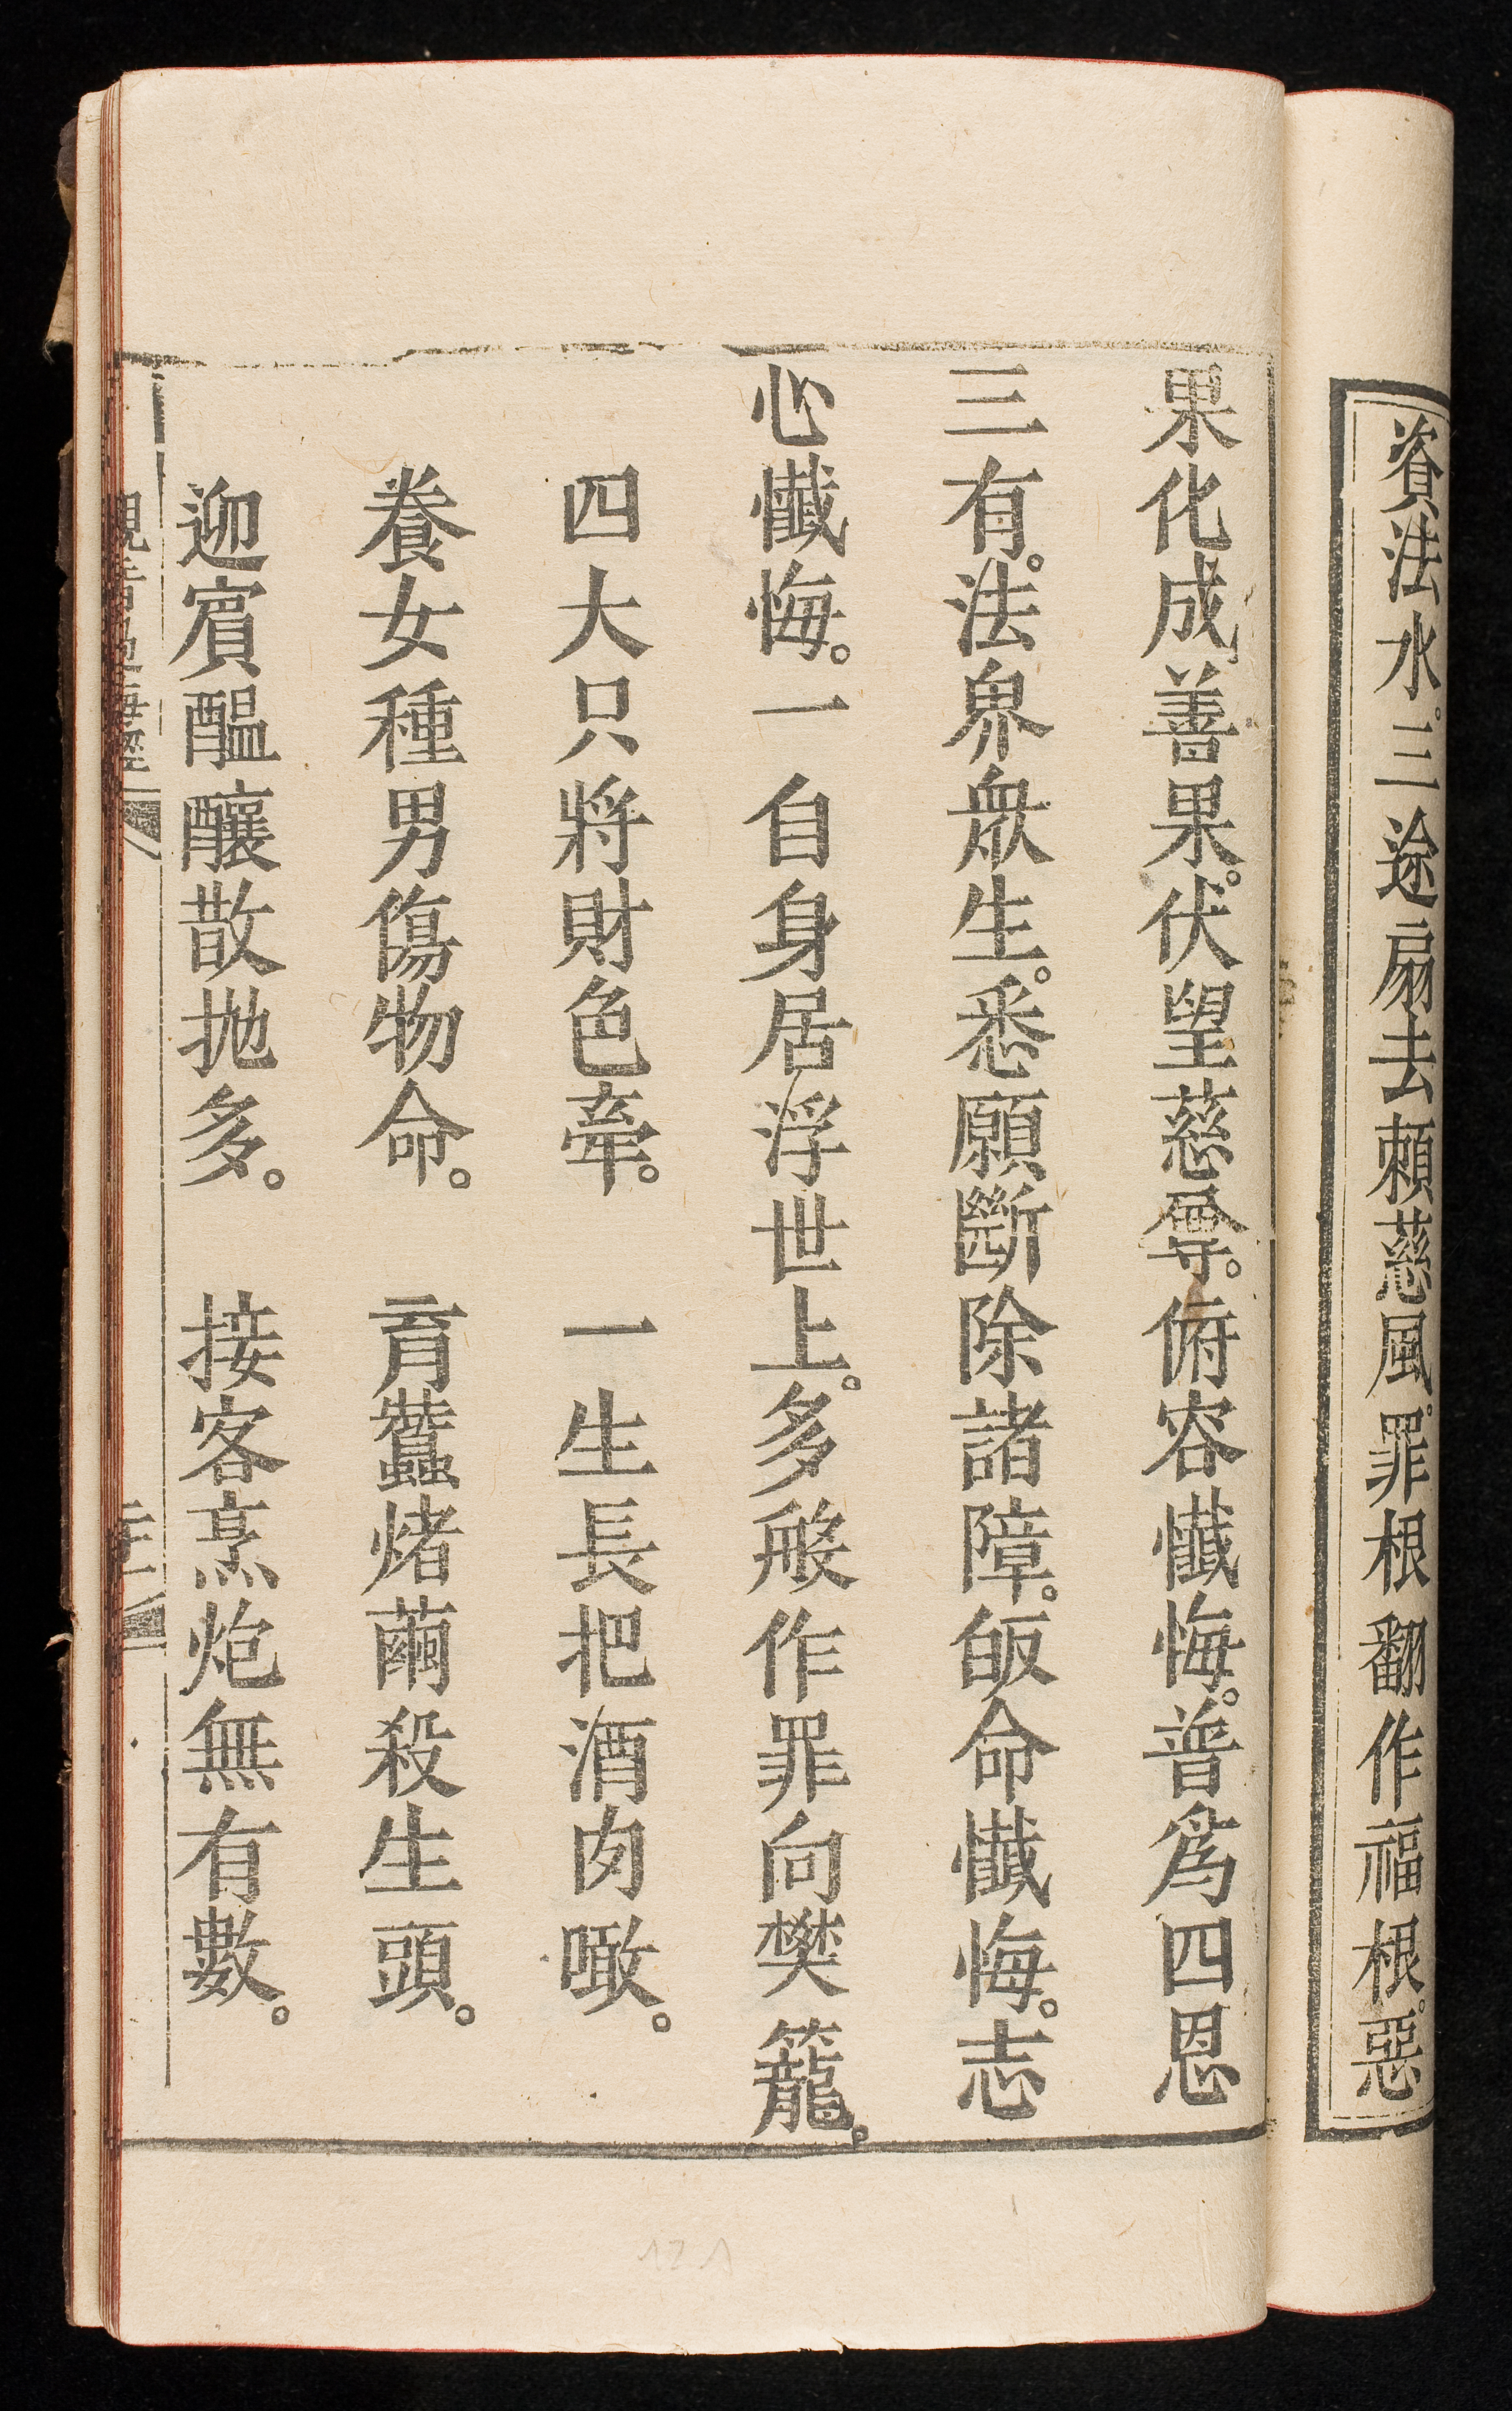 資法水。三途扇去賴慈風。罪根翻作福根。惡
果化成善果。伏望慈尊。俯容懺悔。普爲四恩
三有。法界衆生。悉願斷除諸障。皈命懺悔。志
心懺悔。一自身居浮世上。多般作罪向樊籠。
四大只將財色牽。　一生長把酒肉噉。
養女種男傷物命。　育蠶烤繭殺生頭。
迎賓醞釀散抛多。　接客烹炮無有數。